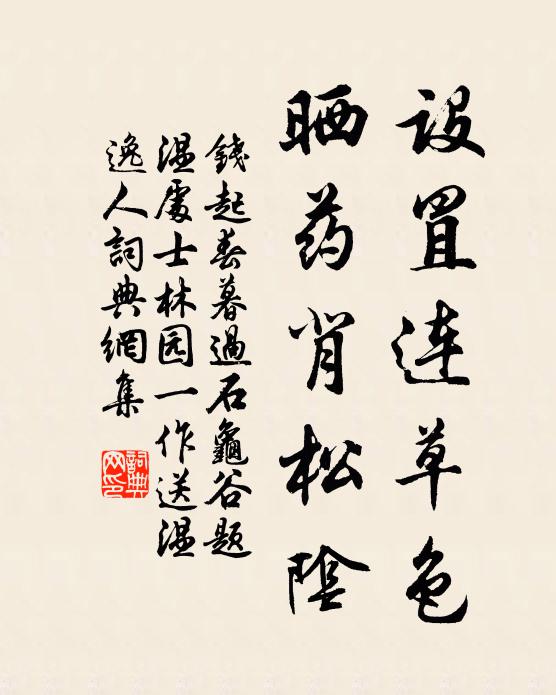 設罝連草色
晒药背松陰
錢起春暮過石龜谷題
温處士林园一作送温
逸人詞典網集
詞典网印